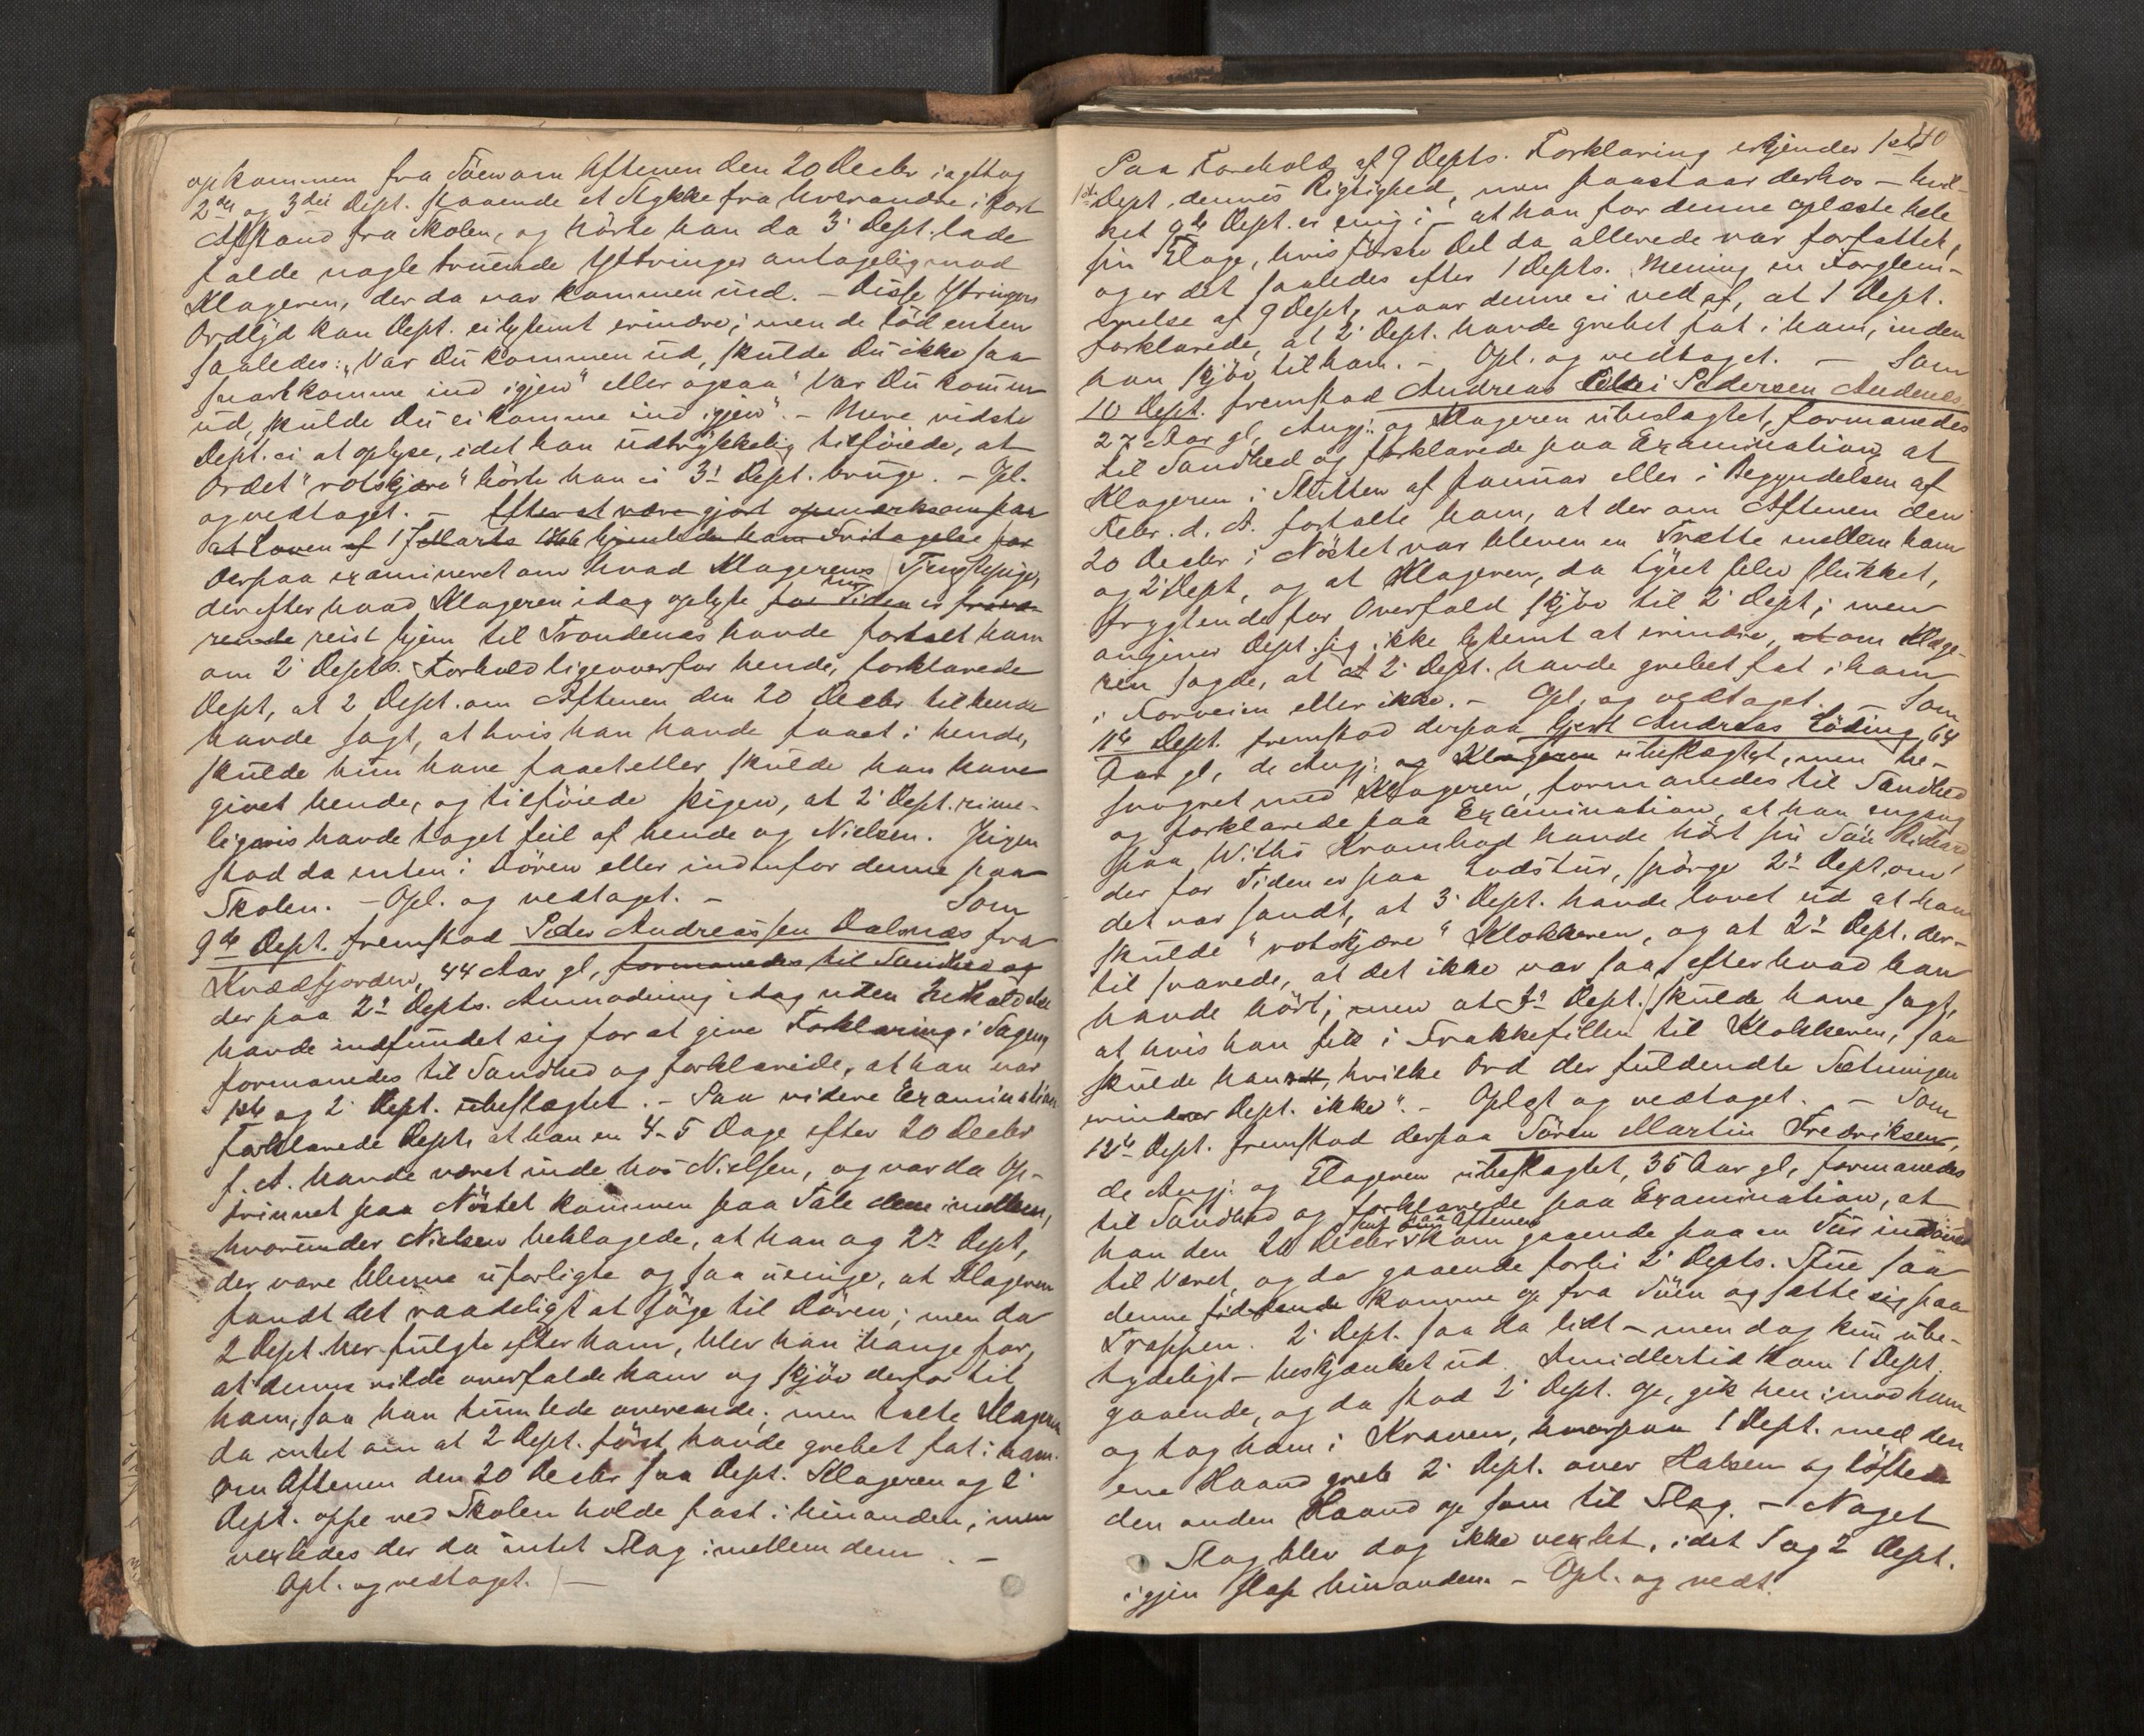 opkommen fra Söen om Aftenen den 20 Decbr iagttog
2den og 3die Dept. staaende et Stykke fra hverandre i kort
Afstand fra Skolen, og hörte han da 3' Dept. lade
falde nogle truende Yttringer antagelig mod
Klageren, der da var kommen ud. – Disse Ytringers
Ordlyd kan Dept. ei bestemt erindre; men de löd enten
saaledes: "Var Du kommen ud, skulde Du ikke saa
snart komme ind igjen" eller ogsaa "Var Du kommen
ud, skulde Du ei komme ind igjen". – Mere vidste
Dept. ei at oplyse, idet han udtrykkelig tilföiede, at
Ordet "rotskjære" hörte han ei 3' Dept. bruge. – Opl.
og vedtaget. – Efter at være gjort opmærksom paa
at Loven af 17 Marts 1866 hjemlede ham Fritagelse for
Derpaa examineret om hvad Klagerens Tjenestepige,
der efter hvad Klageren idag oplyste for Tiden er fravæ-
rende reist hjem til Trondenæs havde fortalt ham
om 2' Depts. Forhold ligeoverfor hende, forklarede
Dept, at 2 Dept. om Aftenen den 20 Decbr til hende
havde sagt, at hvis han havde faaet i hende,
skulde hun have faaet eller skulde han have
givet hende, og tilföiede Pigen, at 2' Dept. rime-
ligvis havde taget feil af hende og Nielsen. Pigen
stod da enten i Dören eller indenfor denne paa
Skolen. – Opl. og vedtaget. – Som
9de Dept. fremstod Peder Andreassen Dalsnæs fra
Kvædfjorden, 44 Aar gl, formanedes til Sandhed og
der paa 2' Depts. Anmodning idag uden
havde indfundet sig for at give Forklaring i Sagen,
formanedes til Sandhed og forklarede, at han var
1ste og 2' Dept. ubeslægtet. – Paa videre Examination
forklarede Dept. at han en 4-5 Dage efter 20 Decbr
f. A. havde været inde hos Nielsen, og var da Op-
trinnet paa Nöstet kommen paa Tale dem imellem,
hvorunder Nielsen beklagede, at han og 2' Dept,
der vare blevne uforligte og saa uenige, at Klageren
fandt det raadeligt at söge til Dören; men da
2 Dept. her fulgte efter ham, blev han bange for,
at denne vilde overfalde ham og skjöv derfor til
ham, saa han tumlede overende; men talte Klageren
da intet om at 2 Dept. först havde grebet fat i ham.
Om Aftenen den 20 Decbr saa Dept. Klageren og 2'
Dept. oppe ved Skolen holde fast i hinanden; men
vexledes der da intet Slag imellem dem. –
Opl. og vedtaget. –
40
Paa Forehold af 9 Depts. Forklaring erkjender 1ste
Dept. dennes Rigtighed, men paastaar derhos – hvil-
ket 9de Dept. er enig i – at han for denne oplæste hele
sin Klage, hvis förste Del da allerede var forfattet,
og er det saaledes efter 1 Depts. Mening en Forglem-
melse af 9 Dept, naar denne ei ved af, at 1 Dept.
forklarede, at 2' Dept. havde grebet fat i ham, inden
han skjöv til ham. – Opl. og vedtaget. – Som
10 Dept. fremstod Andreas Pedersen Andenes
27 Aar gl, Angj: og Klageren ubeslægtet, formanedes
til Sandhed og forklarede paa Examination, at
Klageren i Slutten af Januar eller i Begyndelsen af
Febr. d. A. fortalte ham, at der om Aftenen den
20 Decbr i Nöstet var bleven en Trætte mellem ham
og 2' Dept, og at Klageren, da Lyset blev slukket,
frygtende for Overfald skjöv til 2' Dept; men
angiver Dept. sig ikke bestemt at erindre, at om Klage-
ren sagde, at at 2' Dept. havde grebet fat i ham
i Forveien eller ikke. – Opl. og vedtaget. – Som
11te Dept. fremstod derpaa Gjert Andreas Löding, 64
Aar gl, de Angj: og Klageren ubeslægtet, men be-
svogret med Klageren, formanedes til Sandhed
og forklarede paa Examination, at han engang
paa Withs Krambod havde hört sin Sön Rikhard,
der for Tiden er paa Lodstur, spörge 2' Dept, om
det var sandt, at 3' Dept. havde lovet ud at han
skulde "rotskjære" Klokkeren, og at 2' Dept. der-
til svarede, at det ikke var saa, efter hvad han
havde hört; men at 3' Dept. skulde have sagt,
at hvis han fik i Frakkefillen til Klokkeren, saa
skulde han, hvilke Ord der fuldendte Sætningen
erindrer Dept. ikke". – Oplæst og vedtaget. – Som
12te Dept. fremstod derpaa Sören Martin Fredriksen,
de Angj: og Klageren ubeslægtet, 35 Aar gl, formanedes
til Sandhed og forklarede paa Examination, at
han den 20 Decbr paa Aftenen kom gaaende paa en Tur
til Været, og da gaaende forbi 2' Depts. Stue saa
denne komme op fra Söen og sætte sig paa
Trappen. 2' Dept. saa da lidt – men dog kun ube-
tydeligt – beskjænket ud. Imidlertid kom 1 Dept.
gaaende, og da stod 2' Dept. op, gik hen imod ham
og tog ham i Kraven, hvorpaa 1 Dept. med den
ene Haand greb 2' Dept. over Halsen og löftede
den anden Haand op som til Slag. – Noget
Slag blev dog ikke vexlet, idet 1 og 2 Dept.
igjen slap hinanden. – Opl. og vedt.